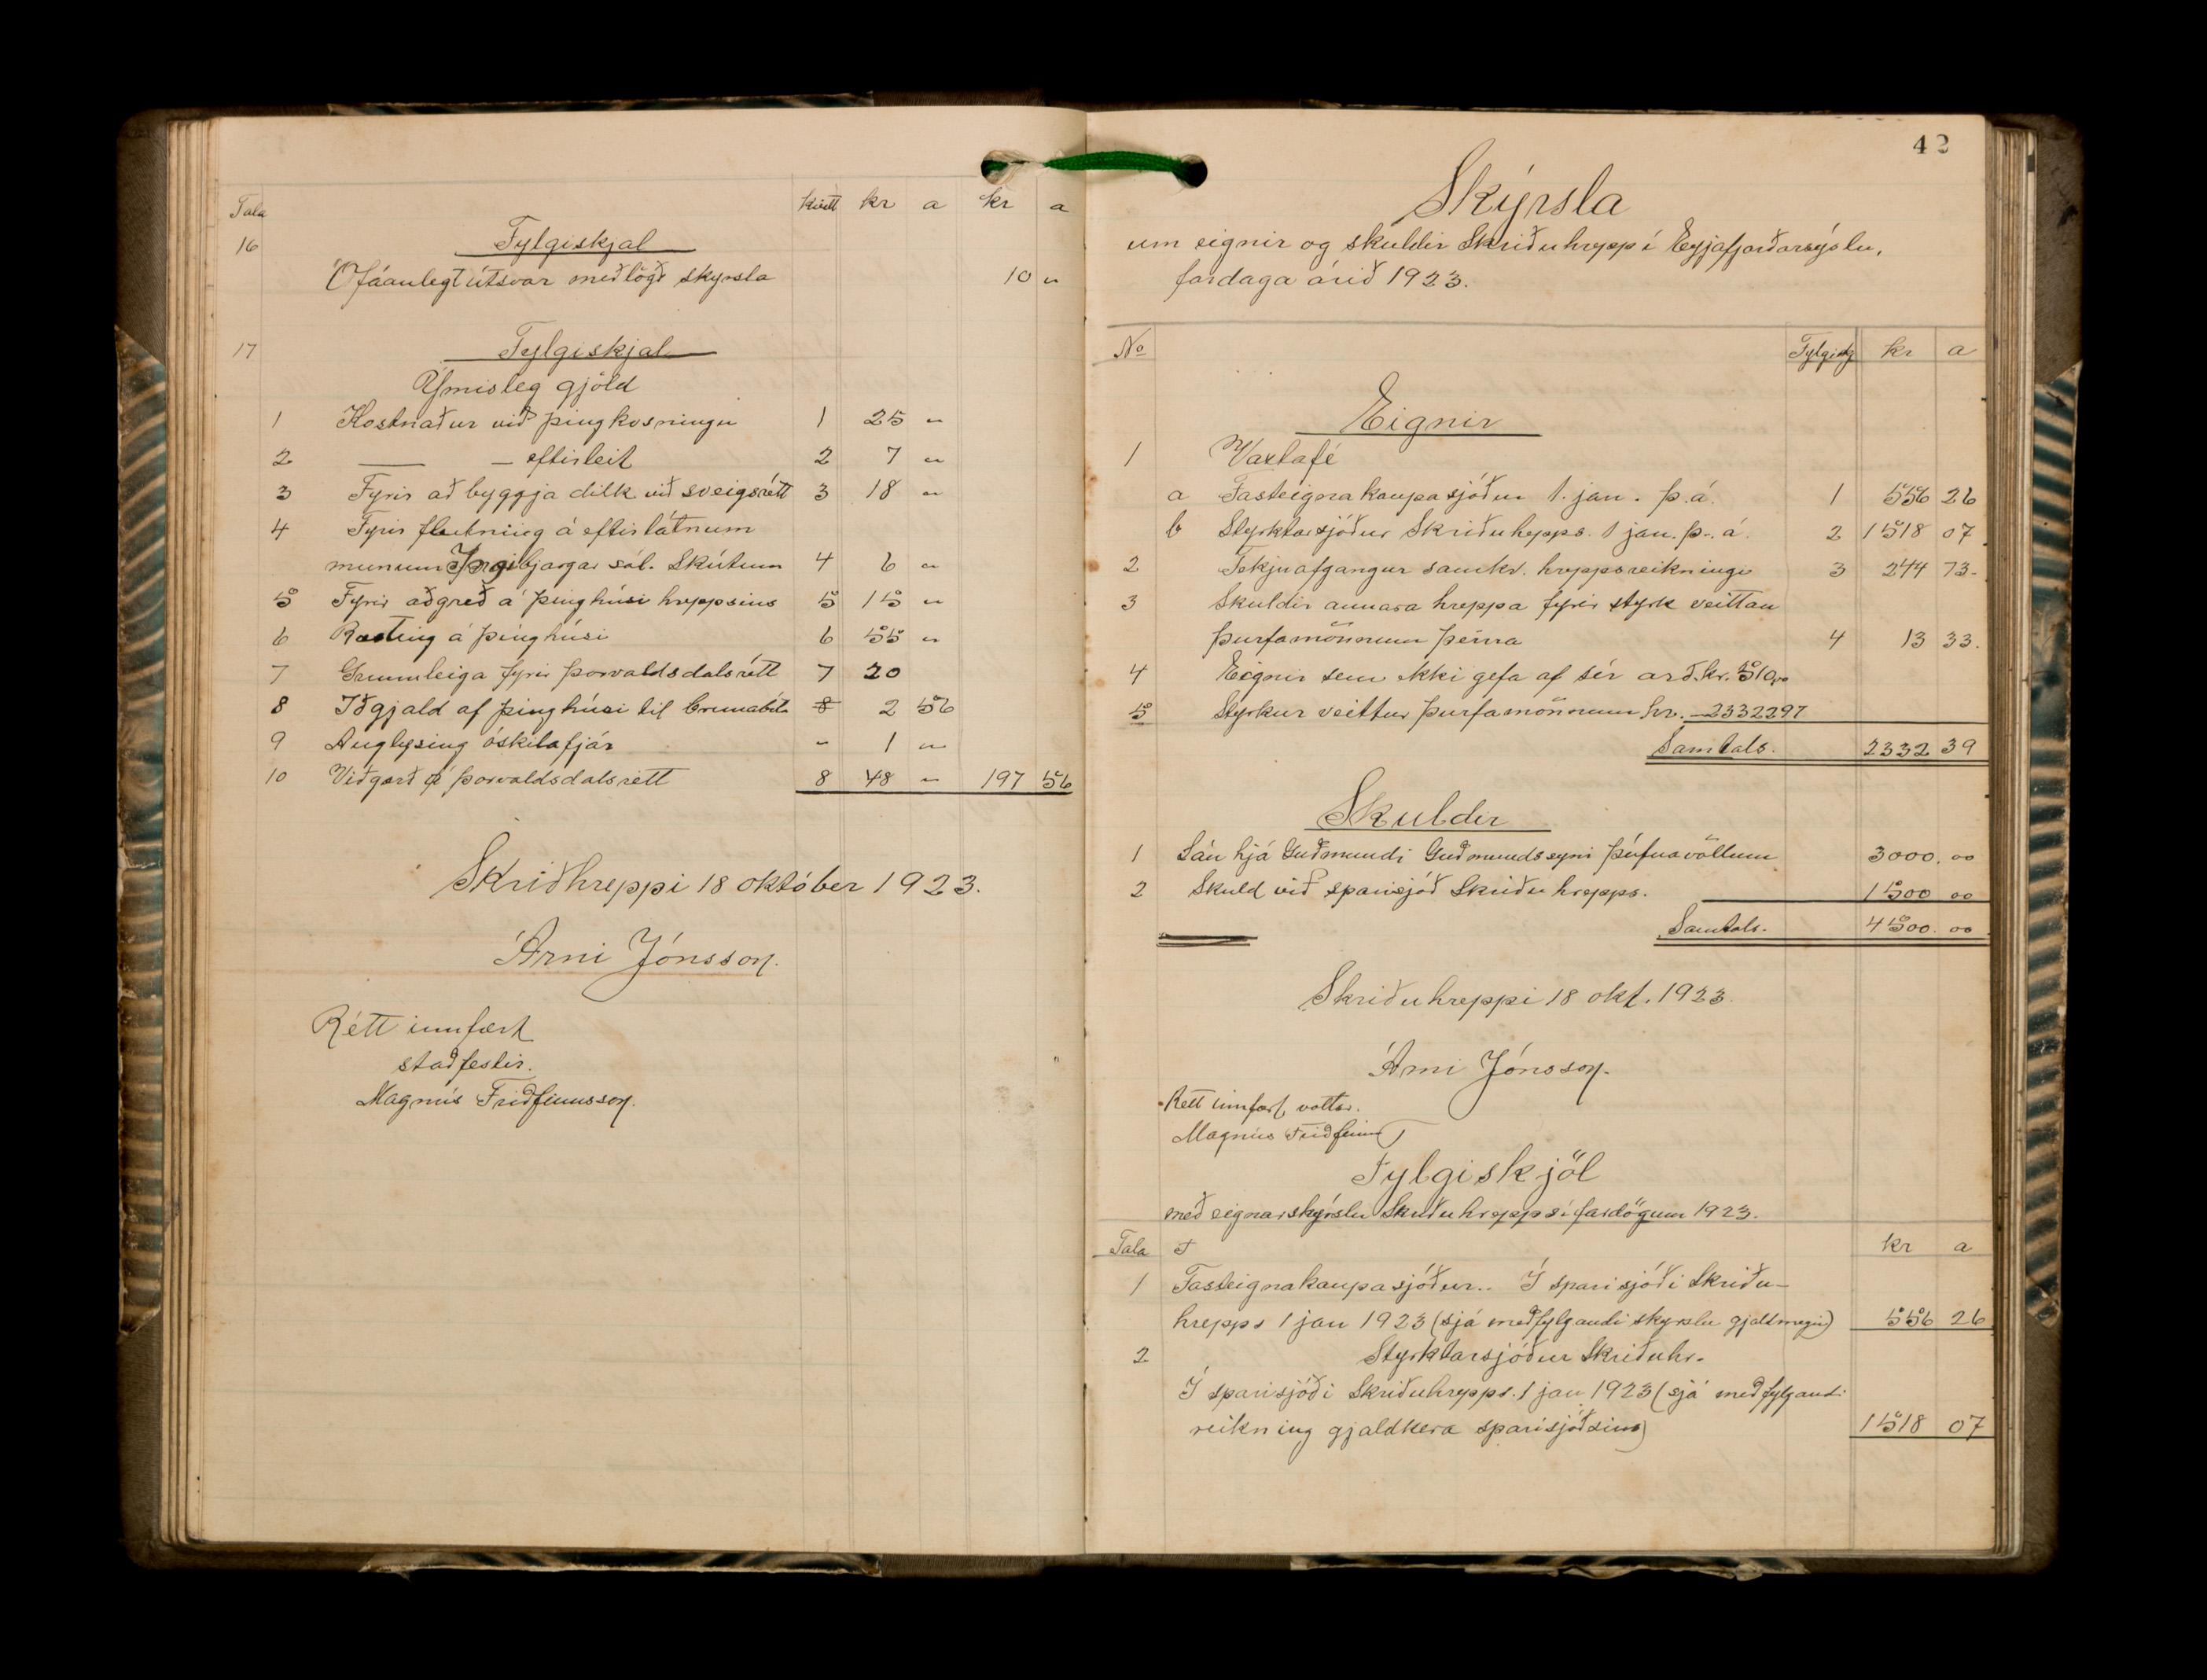 Tala kvitt kr a kr a
16 Fylgiskjal
Ófáanlegt útsvar meðlögð skyrsla 10 "
17 Fylgiskjal
Ýmisleg gjöld
1 Kostnaður við þingkosningu 1 25 "
2 — — eftirleit 2 7 "
3 Fyrir að byggja dilk við sveigsrétt 3 18 "
4 Fyrir flutning á eftirlátnum
munum Ingibjargar sál. Skútum 4 6 "
5 Fyrir aðgreð á þinghúsi hreppsins 5 15 "
6 Ræsting á þinghúsi 6 55 "
7 Grunnleiga fyrir Þorvaldsdalsrétt 7 20
8 Iðgjald af þinghúsi til brunabót 8 2 56
9 Auglysing óskilafjár - 1 "
10 Viðgerð á Þorvaldsdalsrétt 8 48 " 197 56
Skriðhreppi 18 október 1923.
Árni Jónsson.
Rétt innfært
staðfestir.
Magnús Friðfinnsson.
42
Skýrsla
um eignir og skuldir Skriðuhrepp í Eyjafjarðarsýslu,
fardaga árið 1923.
No Fylgiskj kr a
Eignir
1 Vaxtafé
a Fasteignakaupasjóður 1. jan. þ.á. 1 556 26
b Styrktarsjóður Skriðuhrepps. 1 jan. þ.á. 2 1518 07
2 Tekjuafgangur samkv. hreppsreikningi 3 244 73.
3 Skuldir annara hreppa fyrir styrk veittan
þurfamönnum þeirra 4 13 33.
4 Eignir sem ekki gefa af sér arð. kr. 510,00
5 Styrkur veittur þurfamönnum kr. — 2332297
Samtals. 2332 39
Skuldir
1 Lán hjá Guðmundi Guðmundssyni Þúfnavöllum 3000. 00
2 Skuld við sparisjóð Skriðuhrepps. 1500 00
Samtals. 4500. 00
Skriðuhreppi 18 okt. 1923.
Árni Jónsson.
Rétt innfært vottar.
Magnús Friðfinns
Fylgiskjöl
með eignarskýrslu Skriðuhrepps í fardögum 1923.
Tala F kr a
1 Fasteignakaupasjóður.. Í sparisjóði Skriðu-
hrepps 1 jan 1923 (sjá meðfylgandi skyrslu gjaldmegin) 556 26
2 Styrktarsjóður Skriðuhr.
Í sparisjóði Skriðuhrepps. 1 jan 1923 (sjá meðfylgandi
reikning gjaldkera sparisjóðsins) 1518 07